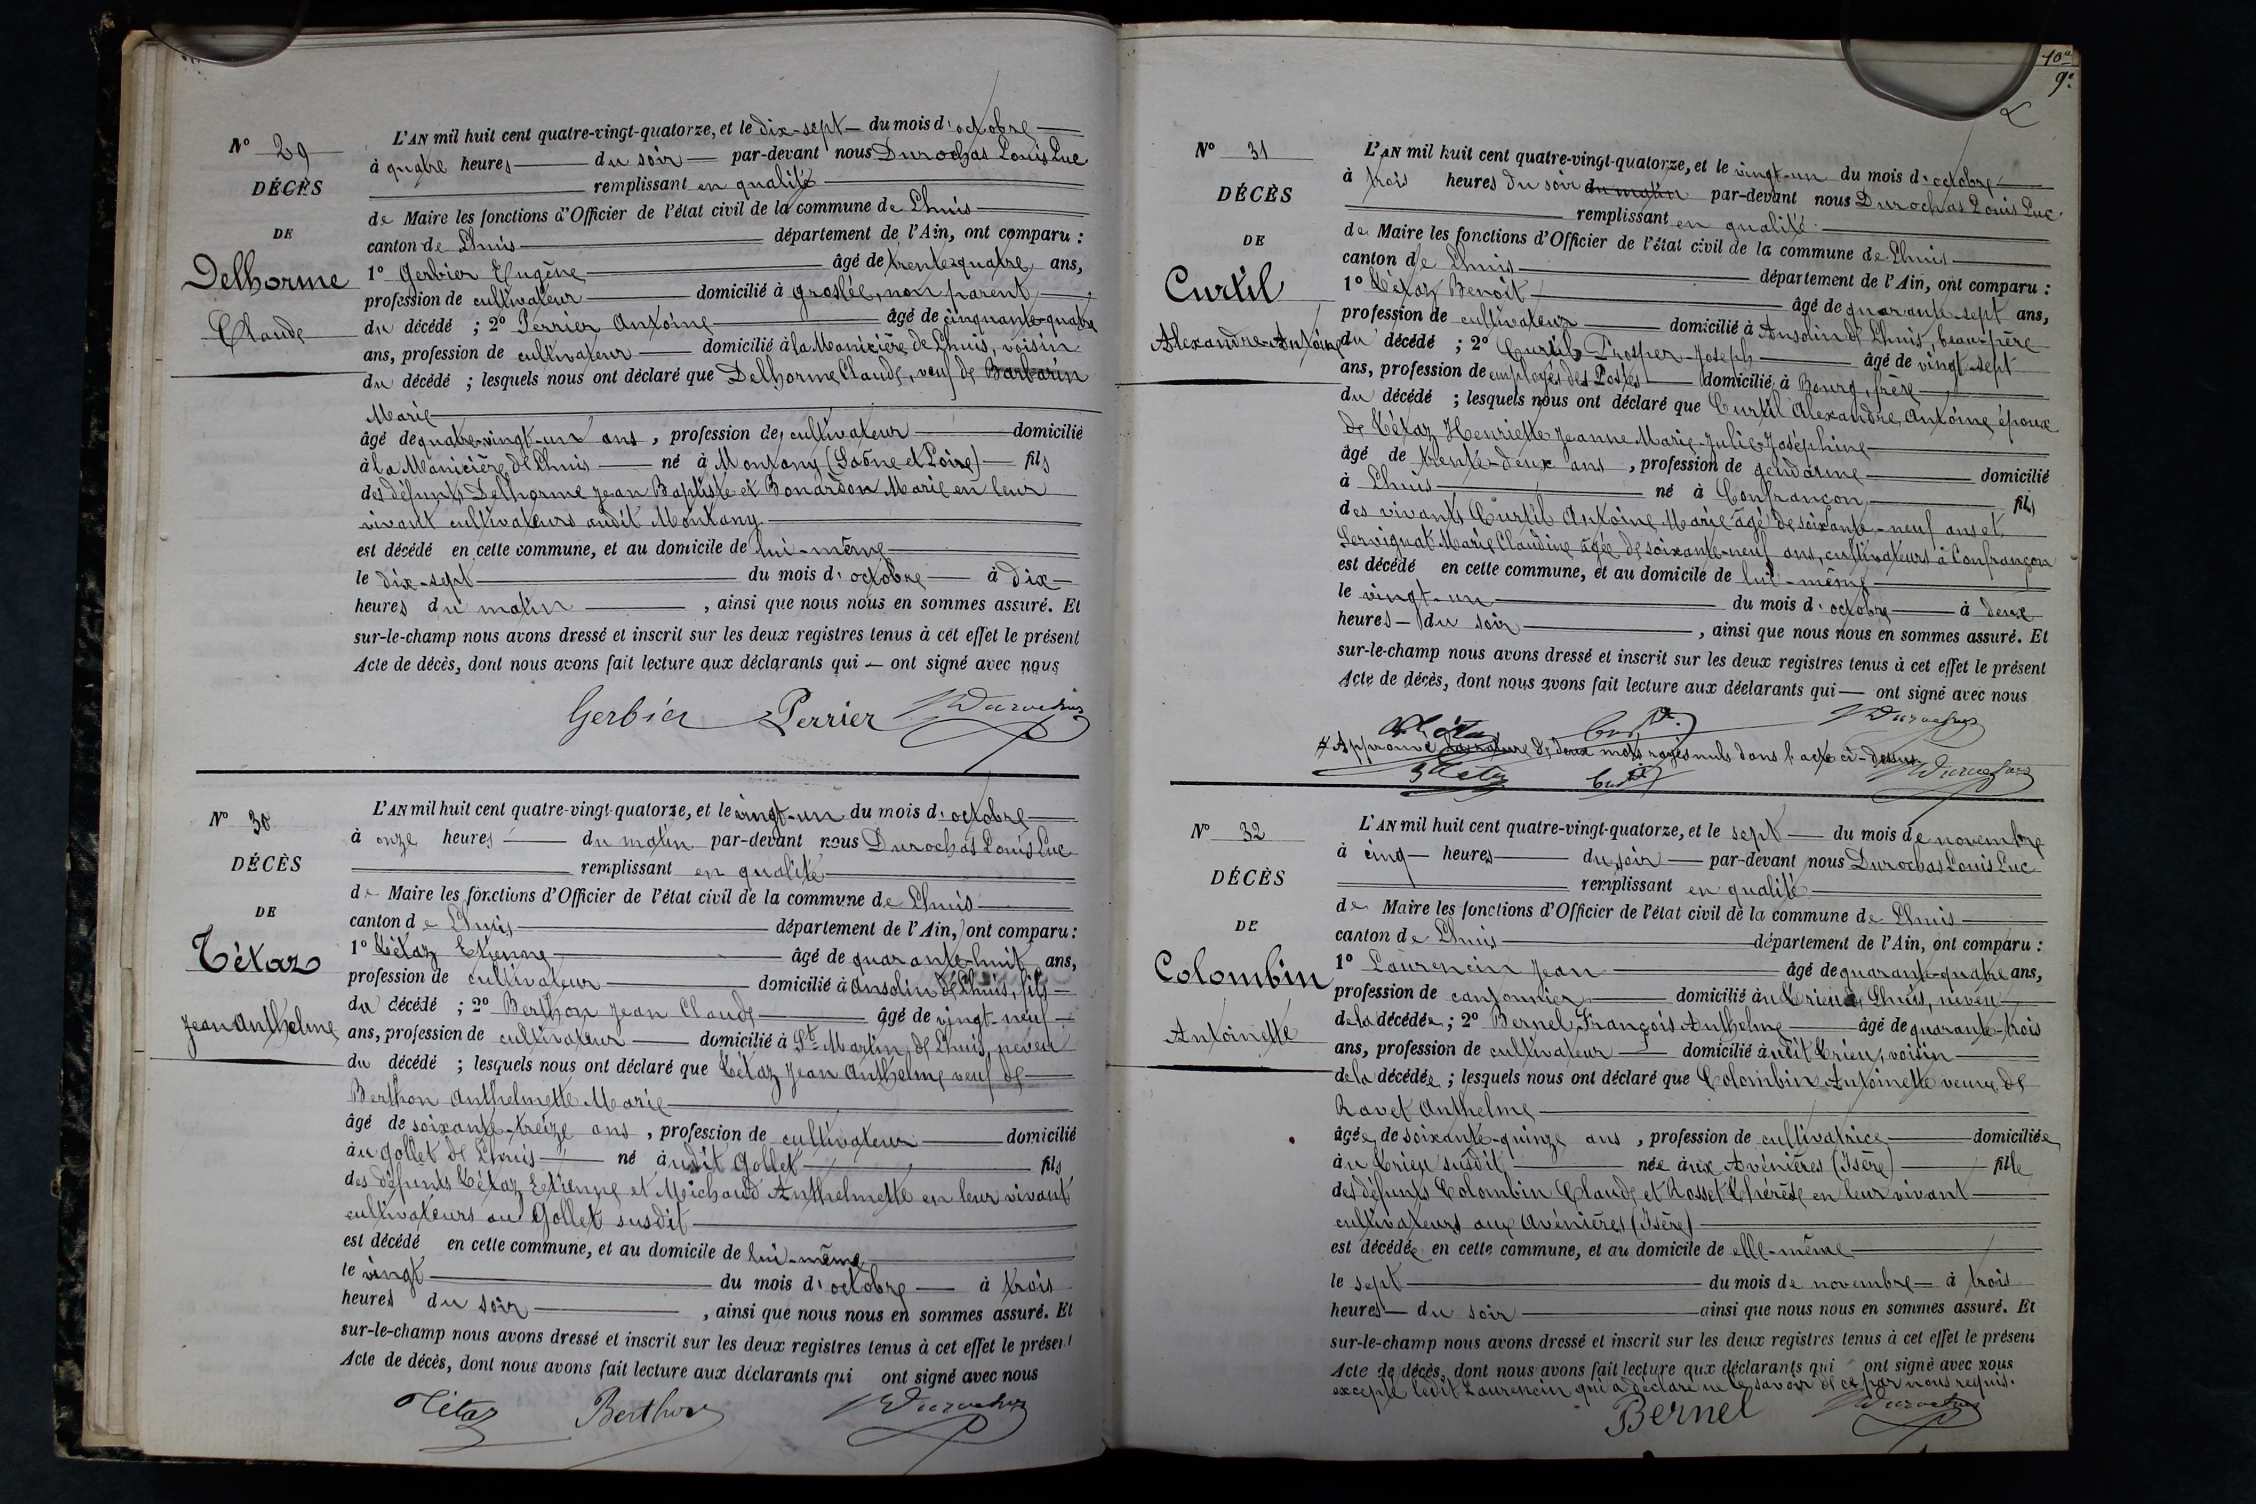 N° 29
DÉCÈS
DE
Delhorme
Claude
L'AN mil huit cent quatre-vingt-quatorze, et le dix-sept du mois d'octobre
à quatre heures du soir par-devant nous Durochas Louis Luc
remplissant en qualité
de Maire les fonctions d'Officier de l'état civil de la commune de Lhuis
canton de Lhuis département de l'Ain, ont comparu :
1° Gerbier Eugène âgé de trente-quatre ans,
profession de cultivateur domicilié à Groslée, non parent
du décédé ; 2° Perrier Antoine âgé de cinquante-quatre
ans, profession de cultivateur domicilié à la Manicière de Lhuis, voisin
du décédé ; lesquels nous ont déclaré que Delhorme Claude, veuf de Barbarin
Marie
âgé de quatre-vingt-un ans, profession de cultivateur domicilié
à la Manicière de Lhuis né à Montany (Saône et Loire) fils
des défunts Delhorme Jean Baptiste et Bonardon Marie en leur
vivant cultivateurs audit Montany
est décédé en cette commune, et au domicile de lui-même
le dix-sept du mois d'octobre à dix
heures du matin, ainsi que nous nous en sommes assuré. Et
sur-le-champ nous avons dressé et inscrit sur les deux registres tenus à cet effet le présent
Acte de décès, dont nous avons fait lecture aux déclarants qui ont signé avec nous
Gerbier Perrier Durochas
N° 30
DÉCÈS
DE
Tétaz
Jean Anthelme
L'AN mil huit cent quatre-vingt-quatorze, et le vingt-un du mois d'octobre
à onze heures du matin par-devant nous Durochas Louis Luc
remplissant en qualité
de Maire les fonctions d'Officier de l'état civil de la commune de Lhuis
canton de Lhuis département de l'Ain, ont comparu :
1° Tétaz Etienne âgé de quarante-huit ans,
profession de cultivateur domicilié à Ansolin de Lhuis, fils
du décédé ; 2° Berthon Jean Claude âgé de vingt-neuf
ans, profession de cultivateur domicilié à St Martin de Lhuis, neveu
du décédé ; lesquels nous ont déclaré que Tétaz Jean Anthelme veuf de
Berthon Anthelmette Marie
âgé de soixante-treize ans, profession de cultivateur domicilié
au Gollet de Lhuis né audit Gollet fils
des défunts Tétaz Etienne et Michaud Anthelmette en leur vivant
cultivateurs au Gollet susdit
est décédé en cette commune, et au domicile de lui-même
le vingt du mois d'octobre à trois
heures du soir, ainsi que nous nous en sommes assuré. Et
sur-le-champ nous avons dressé et inscrit sur les deux registres tenus à cet effet le présent
Acte de décès, dont nous avons fait lecture aux déclarants qui ont signé avec nous
Tétaz Berthon Durochas
10e
9e
N° 31
DÉCÈS
DE
Curtil
Alexandre-Antoine
L'AN mil huit cent quatre-vingt-quatorze, et le vingt-un du mois d'octobre
à trois heures du soir du matin par-devant nous Durochas Louis Luc
remplissant en qualité
de Maire les fonctions d'Officier de l'état civil de la commune de Lhuis
canton de Lhuis département de l'Ain, ont comparu :
1° Tétaz Benoît âgé de quarante-sept ans,
profession de cultivateur domicilié à Ansolin de Lhuis, beau-père
du décédé ; 2° Curtil Prosper-Joseph âgé de vingt-sept
ans, profession de employés des Postes domicilié à Bourg, frère
du décédé ; lesquels nous ont déclaré que Curtil Alexandre, Antoine, époux
de Tétaz Henriette Jeanne Marie-Julie-Joséphine
âgé de trente-deux ans, profession de gendarme domicilié
à Lhuis né à Confrançon fils
des vivants Curtil Antoine Marie âgé de soixante-neuf ans et
Servignat Marie Claudine âgée de soixante-neuf ans, cultivateurs à Confrançon
est décédé en cette commune, et au domicile de lui-même
le vingt-un du mois d'octobre à deux
heures du soir, ainsi que nous nous en sommes assuré. Et
sur-le-champ nous avons dressé et inscrit sur les deux registres tenus à cet effet le présent
Acte de décès, dont nous avons fait lecture aux déclarants qui ont signé avec nous
Tétaz Curtil Durochas
Approuvé la rature de deux mots rayés nuls dans l'acte ci-dessus
Tétaz Curtil Durochas
N° 32
DÉCÈS
DE
Colombin
Antoinette
L'AN mil huit cent quatre-vingt-quatorze, et le sept du mois de novembre
à cinq heures du soir par-devant nous Durochas Louis Luc
remplissant en qualité
de Maire les fonctions d'Officier de l'état civil de la commune de Lhuis
canton de Lhuis département de l'Ain, ont comparu :
1° Laurencin Jean âgé de quarante-quatre ans,
profession de cantonnier domicilié au Crieu de Lhuis, neveu
de la décédée ; 2° Bernel François Anthelme âgé de quarante-trois
ans, profession de cultivateur domicilié audit Crieu, voisin
de la décédée ; lesquels nous ont déclaré que Colombin Antoinette veuve de
Ravet Anthelme
âgée de soixante-quinze ans, profession de cultivatrice domiciliée
au Crieu susdit née aux Avenières (Isère) fille
des défunts Colombin Claude et Rosset Thérèse en leur vivant
cultivateurs aux Avenières (Isère)
est décédée en cette commune, et au domicile de elle-même
le sept du mois de novembre à trois
heures du soir ainsi que nous nous en sommes assuré. Et
sur-le-champ nous avons dressé et inscrit sur les deux registres tenus à cet effet le présent
Acte de décès, dont nous avons fait lecture aux déclarants qui ont signé avec nous
excepté ledit Laurencin qui a déclaré ne le savoir de ce par nous requis.
Bernel Durochas